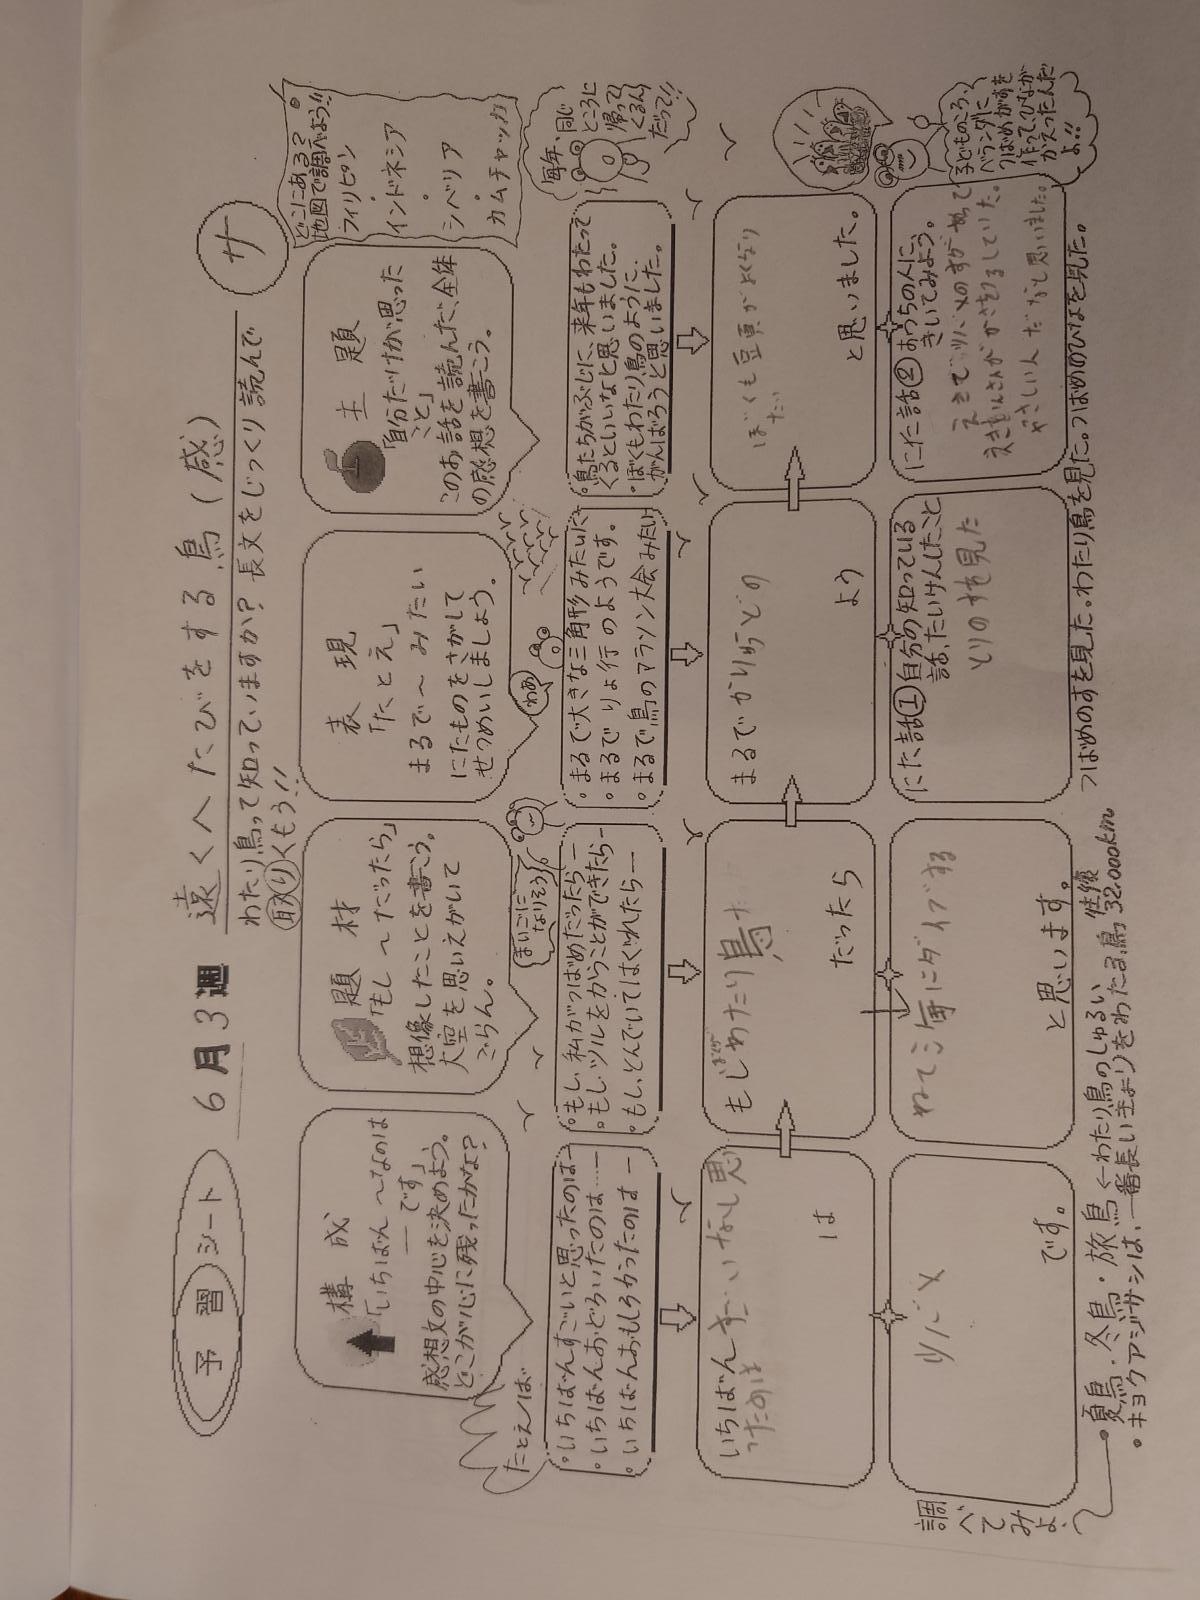 予習シート
6月3週
遠くへたびをする鳥(感)
サ
わたり鳥って知っていますか?長文をじっくり読んで
取りくもう!!
構成
「いちばん〜なのは
―です」
感想文の中心を決めよう。
どこが心に残ったかな?
題材
「もし〜だったら」
想像したことを書こう。
大空を思いえがいて
ごらん。
表現
「たとえ」
まるで〜みたい
にたものをさがして
せつめいしましょう。
主題
「自分だけが思った
こと」
このお話を読んだ、全体
の感想を書こう。
どこにある?
地図で調べよう!!
フィリピン
・
インドネシア
・
シベリア
・
カムチャッカ
たとえば
・いちばんすごいと思ったのは―
・いちばんおどろいたのは……
・いちばんおもしろかったのは―
まいごに
なりそう
・もし、私がつばめだったら―
・もし、ツルをかうことができたら―
・もし、とんでいてはぐれたら―
わあ
・まるで大きな三角形みたいに
・まるでりょ行のようです。
・まるで鳥のマラソン大会みたい
・鳥たちがぶじに、来年もわたって
くるといいなと思いました。
・ぼくもわたり鳥のように、
がんばろうと思いました。
毎年、同じ
ところに
帰って
くるん
だって!!
いちばんすごいなと思
ったのは
は
もしぼくがわたり鳥
だったら
まるで
よう
ぼくも豆頁がよくなり
たい
と思いました。
ツバメ
です。
ねてる海にダイブする
と思います。
にた話① 自分の知っている
話、たいけんしたこと
とりのすを見た
にた話② おうちの人に、
きいてみよう。
えきでツバメのすが
えきいんさんがかさを
やさしい人だなと思いました。
子どものころ、
ベランダに
つばめがすを
作ってひなが
かえったんだ
よ!!
調べてみよ
・夏鳥・冬鳥・旅鳥←わたり鳥のしゅるい
・キョクアジサシは、一番長いきょりをわたる鳥 往復32,000km
つばめのすを見た。わたり鳥を見た。つばめのひなを見た。